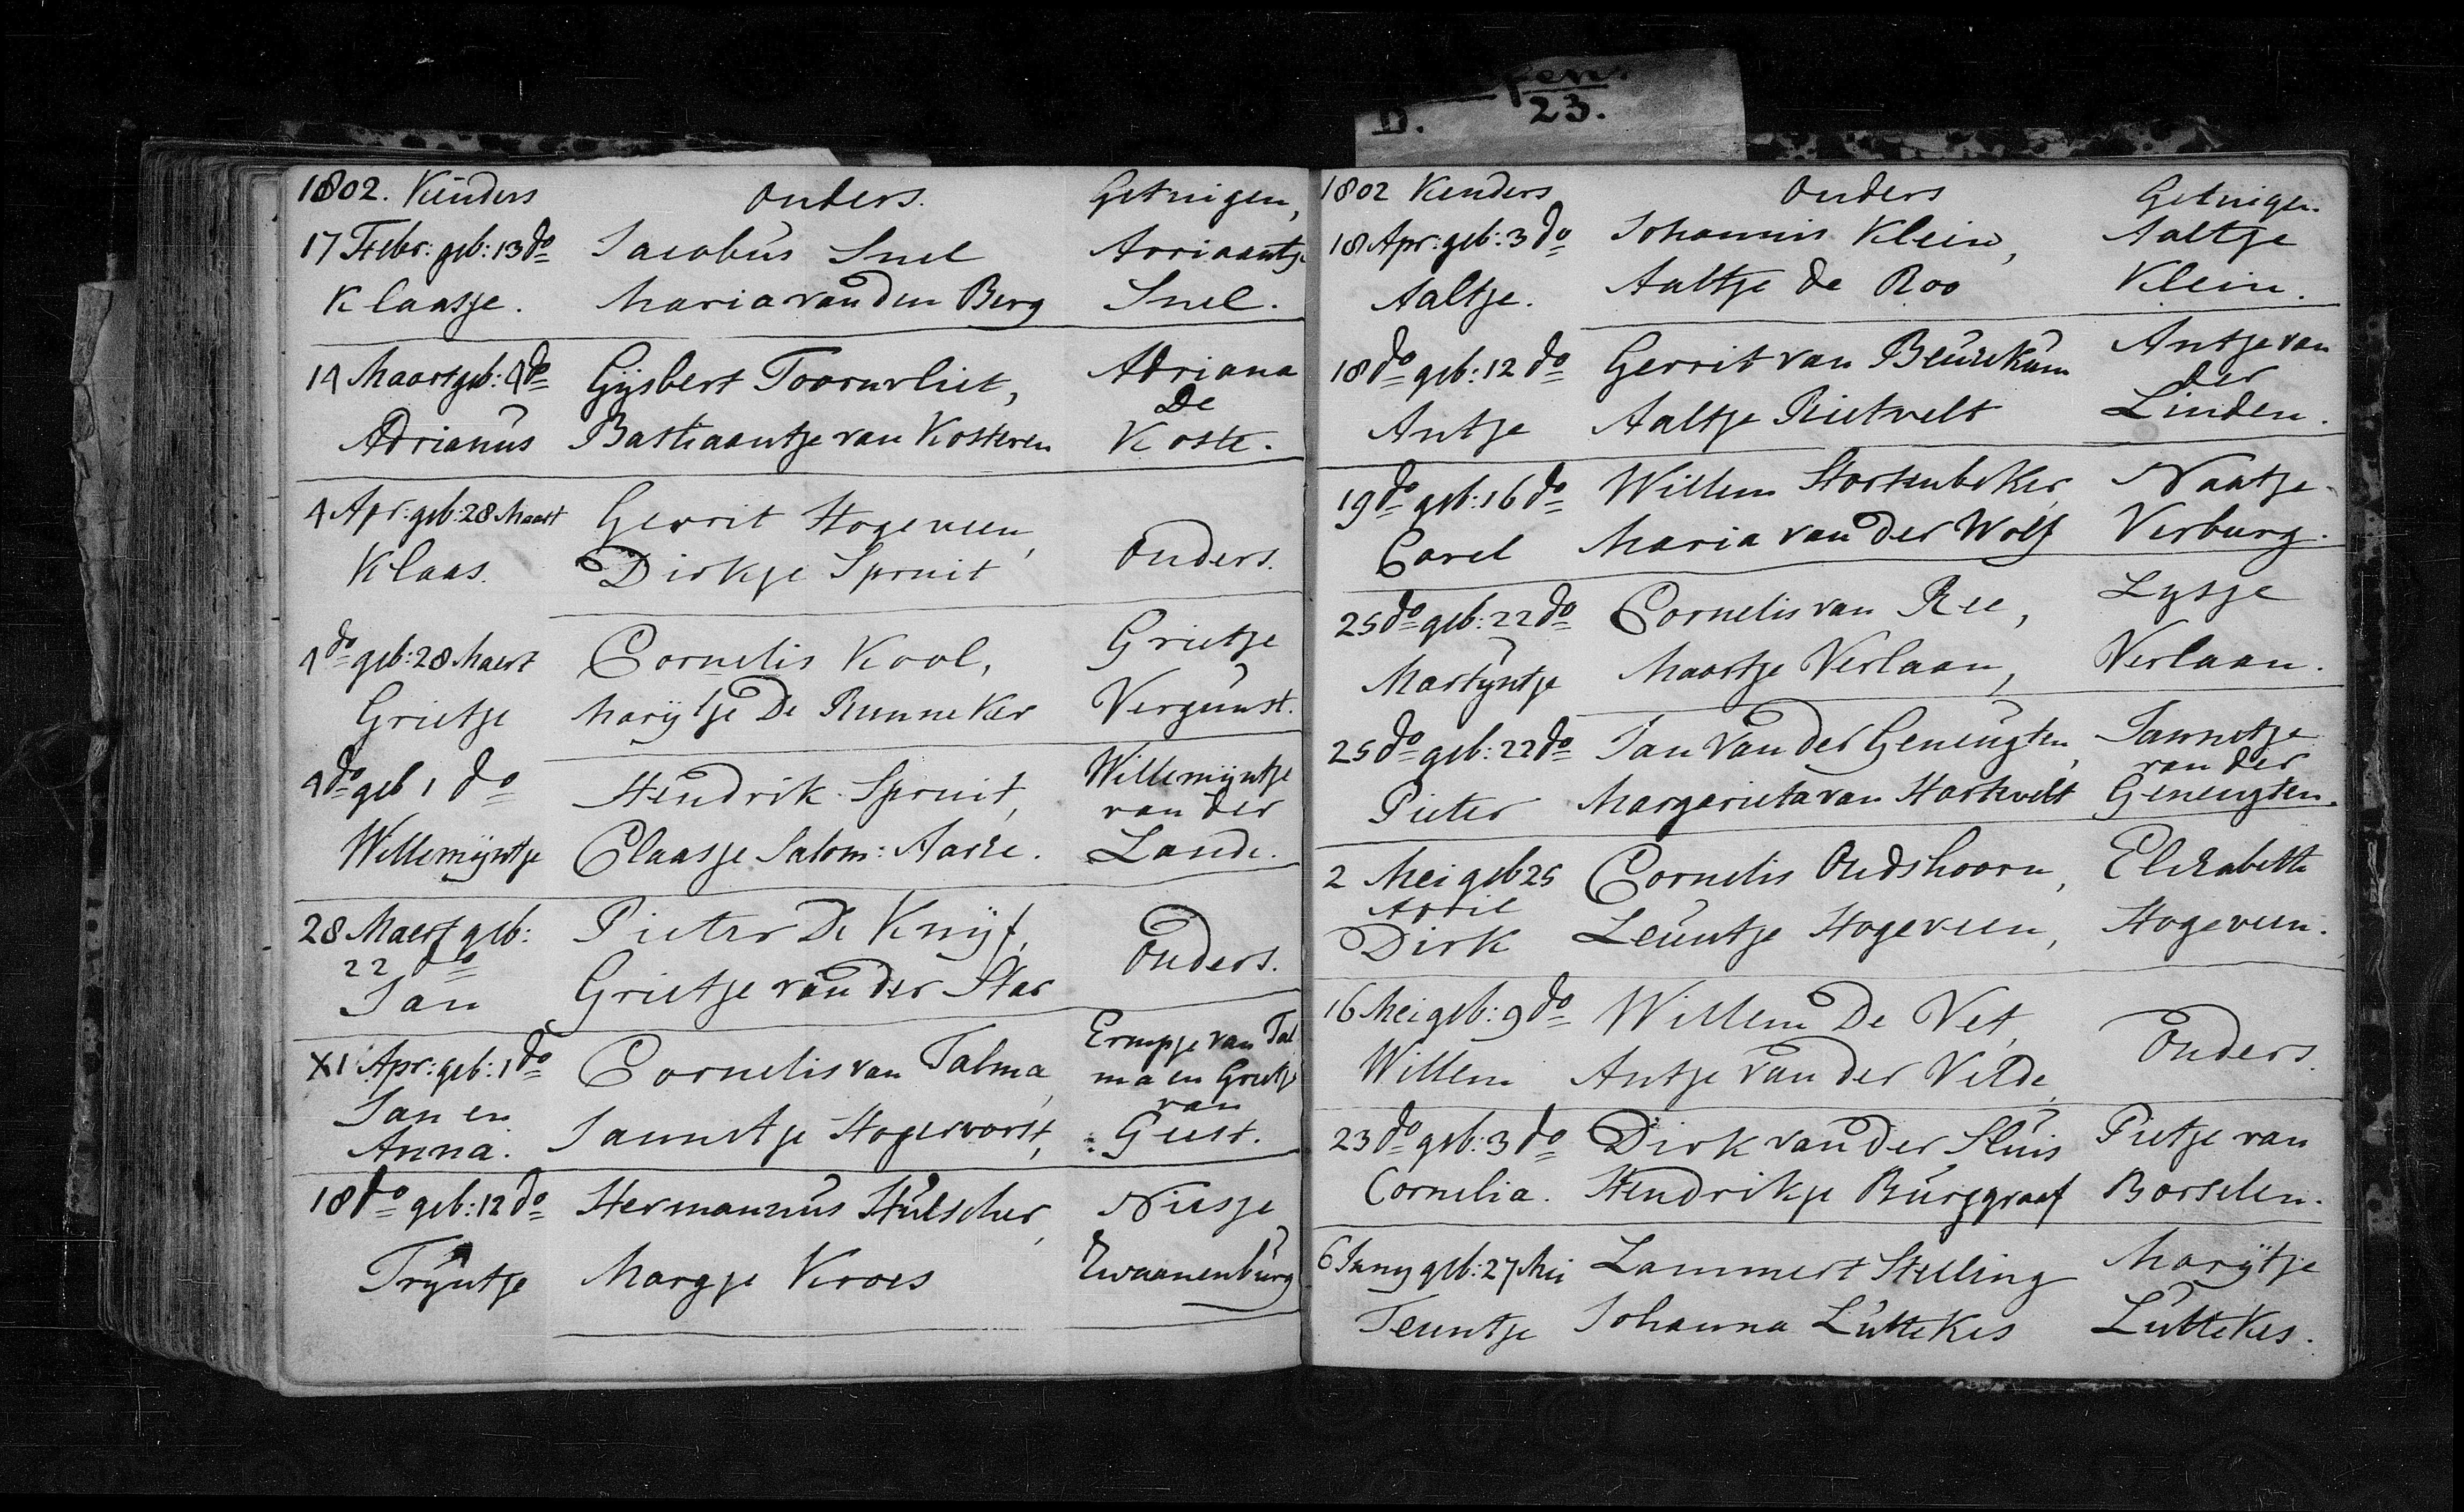 D. fen.
23.
1802. Kinders Ouders. Getuigen,
17 Febr: geb: 13 do Jacobus Snel Arriaantje
Klaasje. Maria van den Berg Snel.
14 Maart geb: 4 do Gijsbert Toornvliet, Adriana
De
Adrianus Bastiaantje van Kosteren Koste.
4 Apr: geb: 28 Maart Gerrit Hogeveen,
Klaas. Dirkje Spruit Ouders.
4 do geb: 28 Maert Cornelis Kool, Grietje
Grietje Marijtje De Runneker Vergunst.
4 do geb 1 do Hendrik Spruit, Willemijntje
van der
Willemijntje Claasje Salom: Lande.
28 Maert geb: Pieter De Knijf,
22 do Ouders.
Jan Grietje van der Star
XI Apr: geb: 1 do Cornelis van Talma, Ermpje van Tal
ma en Grietje
Jan en van
Anna. Jannetje Hogervorst, Geest.
18 do geb: 12 do Hermannus Hulscher, Niesje
Trijntje Margje Kroes Zwaanenburg
1802 Kinders Ouders Getuigen
18 Apr: geb: 3 do Johannis Klein, Aaltje
Aaltje. Aaltje de Roo Klein.
18 do geb: 12 do Gerrit van Beuzekum Antje van
der
Antje Aaltje Rietvelt Linden.
19 do geb: 16 do Willem Stortenbeker, Naatje
Carel Maria van der Wolf Verburg.
25 do geb: 22 do Cornelis van Ree, Lysje
Martijntje Maartje Verlaan, Verlaan.
25 do geb: 22 do Jan van der Geneugten, Jannetje
van der
Pieter Margarieta van Hartevelt Geneugten.
2 Mei geb 25 Cornelis Oudshoorn, Elizabetth
April
Dirk Leuntje Hogeveen, Hogeveen.
16 Mei geb: 9 do Willem De Vet,
Ouders.
Willem Antje van der Velde,
23 do geb: 3 do Dirk van der Sluis Pietje van
Cornelia. Hendrikje Burggraaf Borselen.
6 Juny geb: 27 Mei Lammert Stelling Marijtje
Teuntje Johanna Luttekes Luttekes.